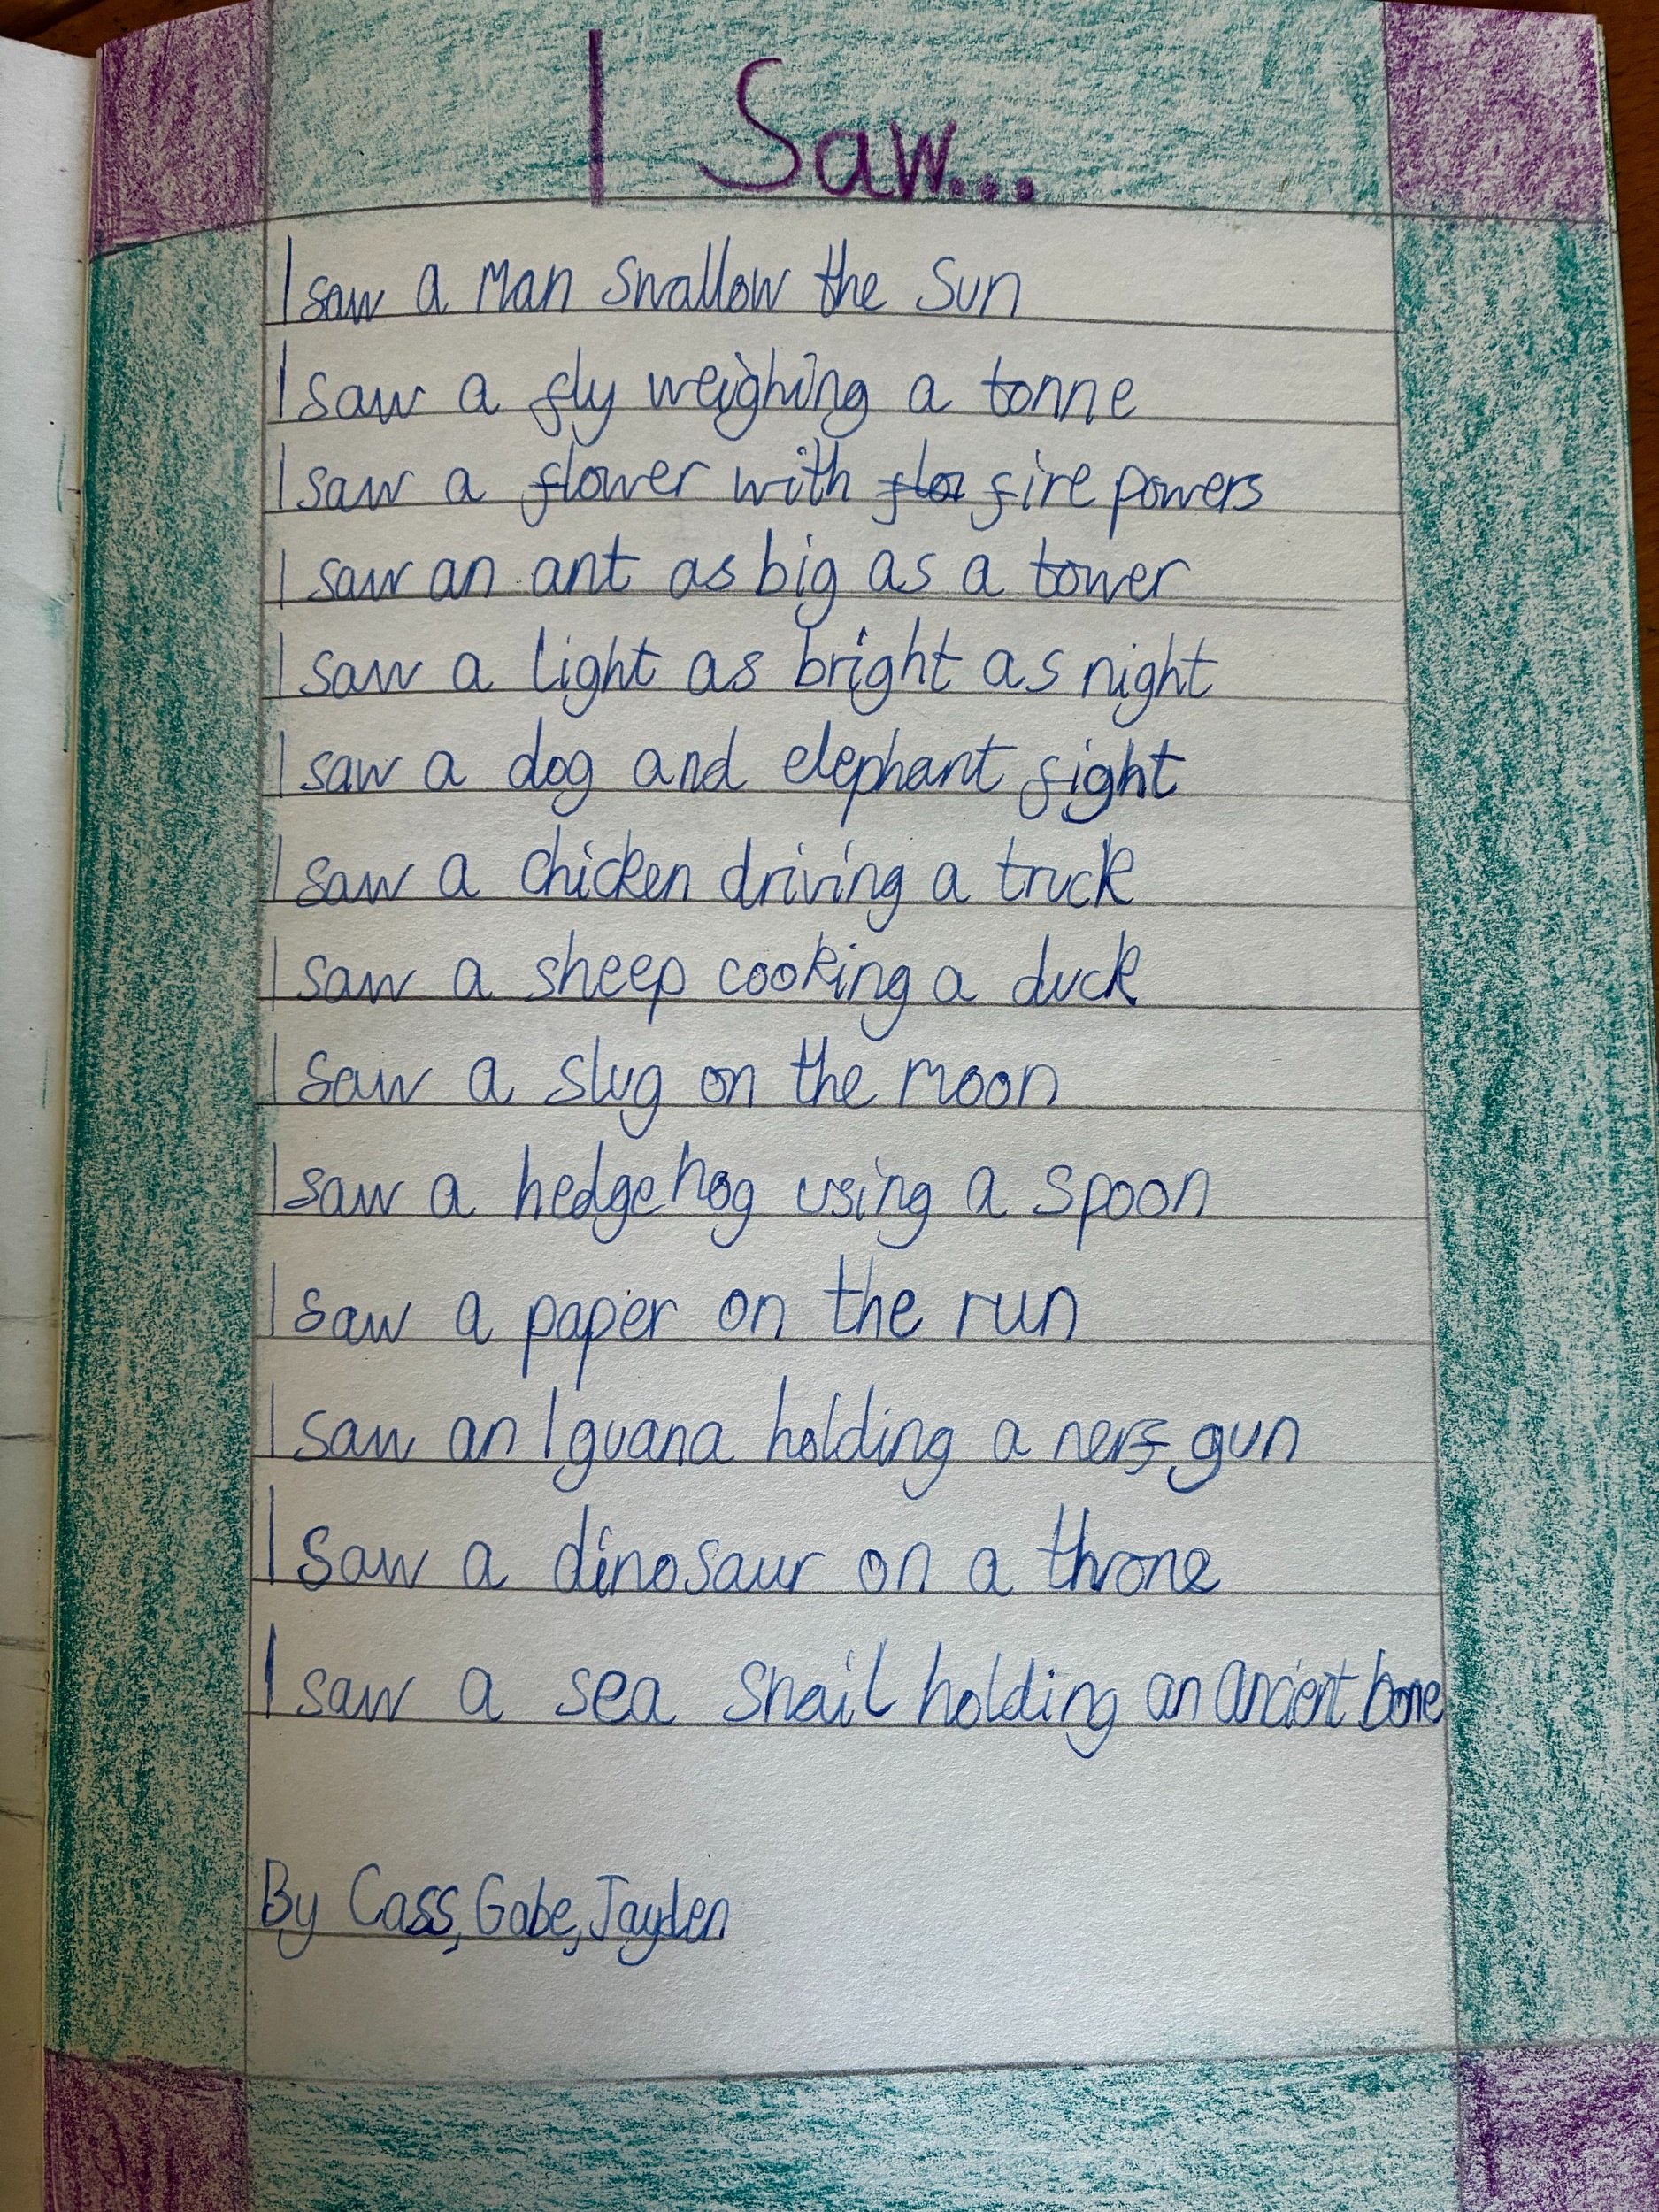 I Saw...
I saw a Man Swallow the Sun
I saw a fly weighing a tonne
I saw a flower with flo fire powers
I saw an ant as big as a tower
I saw a light as bright as night
I saw a dog and elephant fight
I saw a chicken driving a truck
I saw a sheep cooking a duck
I saw a slug on the moon
I saw a hedgehog using a spoon
I saw a paper on the run
I saw an Iguana holding a nerf gun
I saw a dinosaur on a throne
I saw a sea snail holding an ancient bone
By Cass, Gabe, Jayden